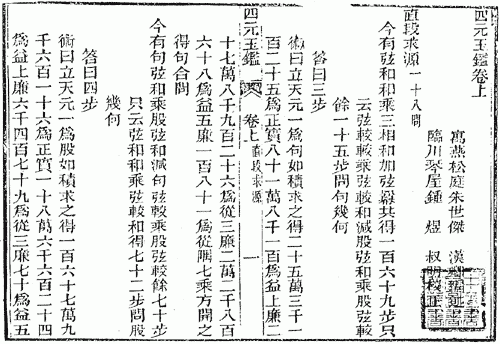 四元玉鑑卷上
寓燕松庭朱世傑 漢卿編述
臨川琴屋鍾 煜 叔明校正
直段求源一十八問
今有弦和和乘三相和加弦羃共得一百六十九步只
云弦較較乘弦較和減股弦和乘股弦較
餘一十五步問句幾何
答曰三步
術曰立天元一爲句如積求之得二十五萬三千一
百二十五爲正實八十一萬八千一百爲益上廉二
四元玉鑑 卷上 直段求源 一
十七萬八千九百二十六爲從三廉二萬二千八百
六十八爲益五廉一百八十一爲從隅七乘方開之
得句合問
今有句弦和乘股弦和減句弦較乘股弦較餘七十步
只云弦和和乘弦較較和得七十二步問股
幾何
答曰四步
術曰立天元一爲股如積求之得一百六十七萬九
千六百一十六爲正實一十八萬六千六百二十四
爲益上廉六千四百七十九爲從三廉七十爲益五